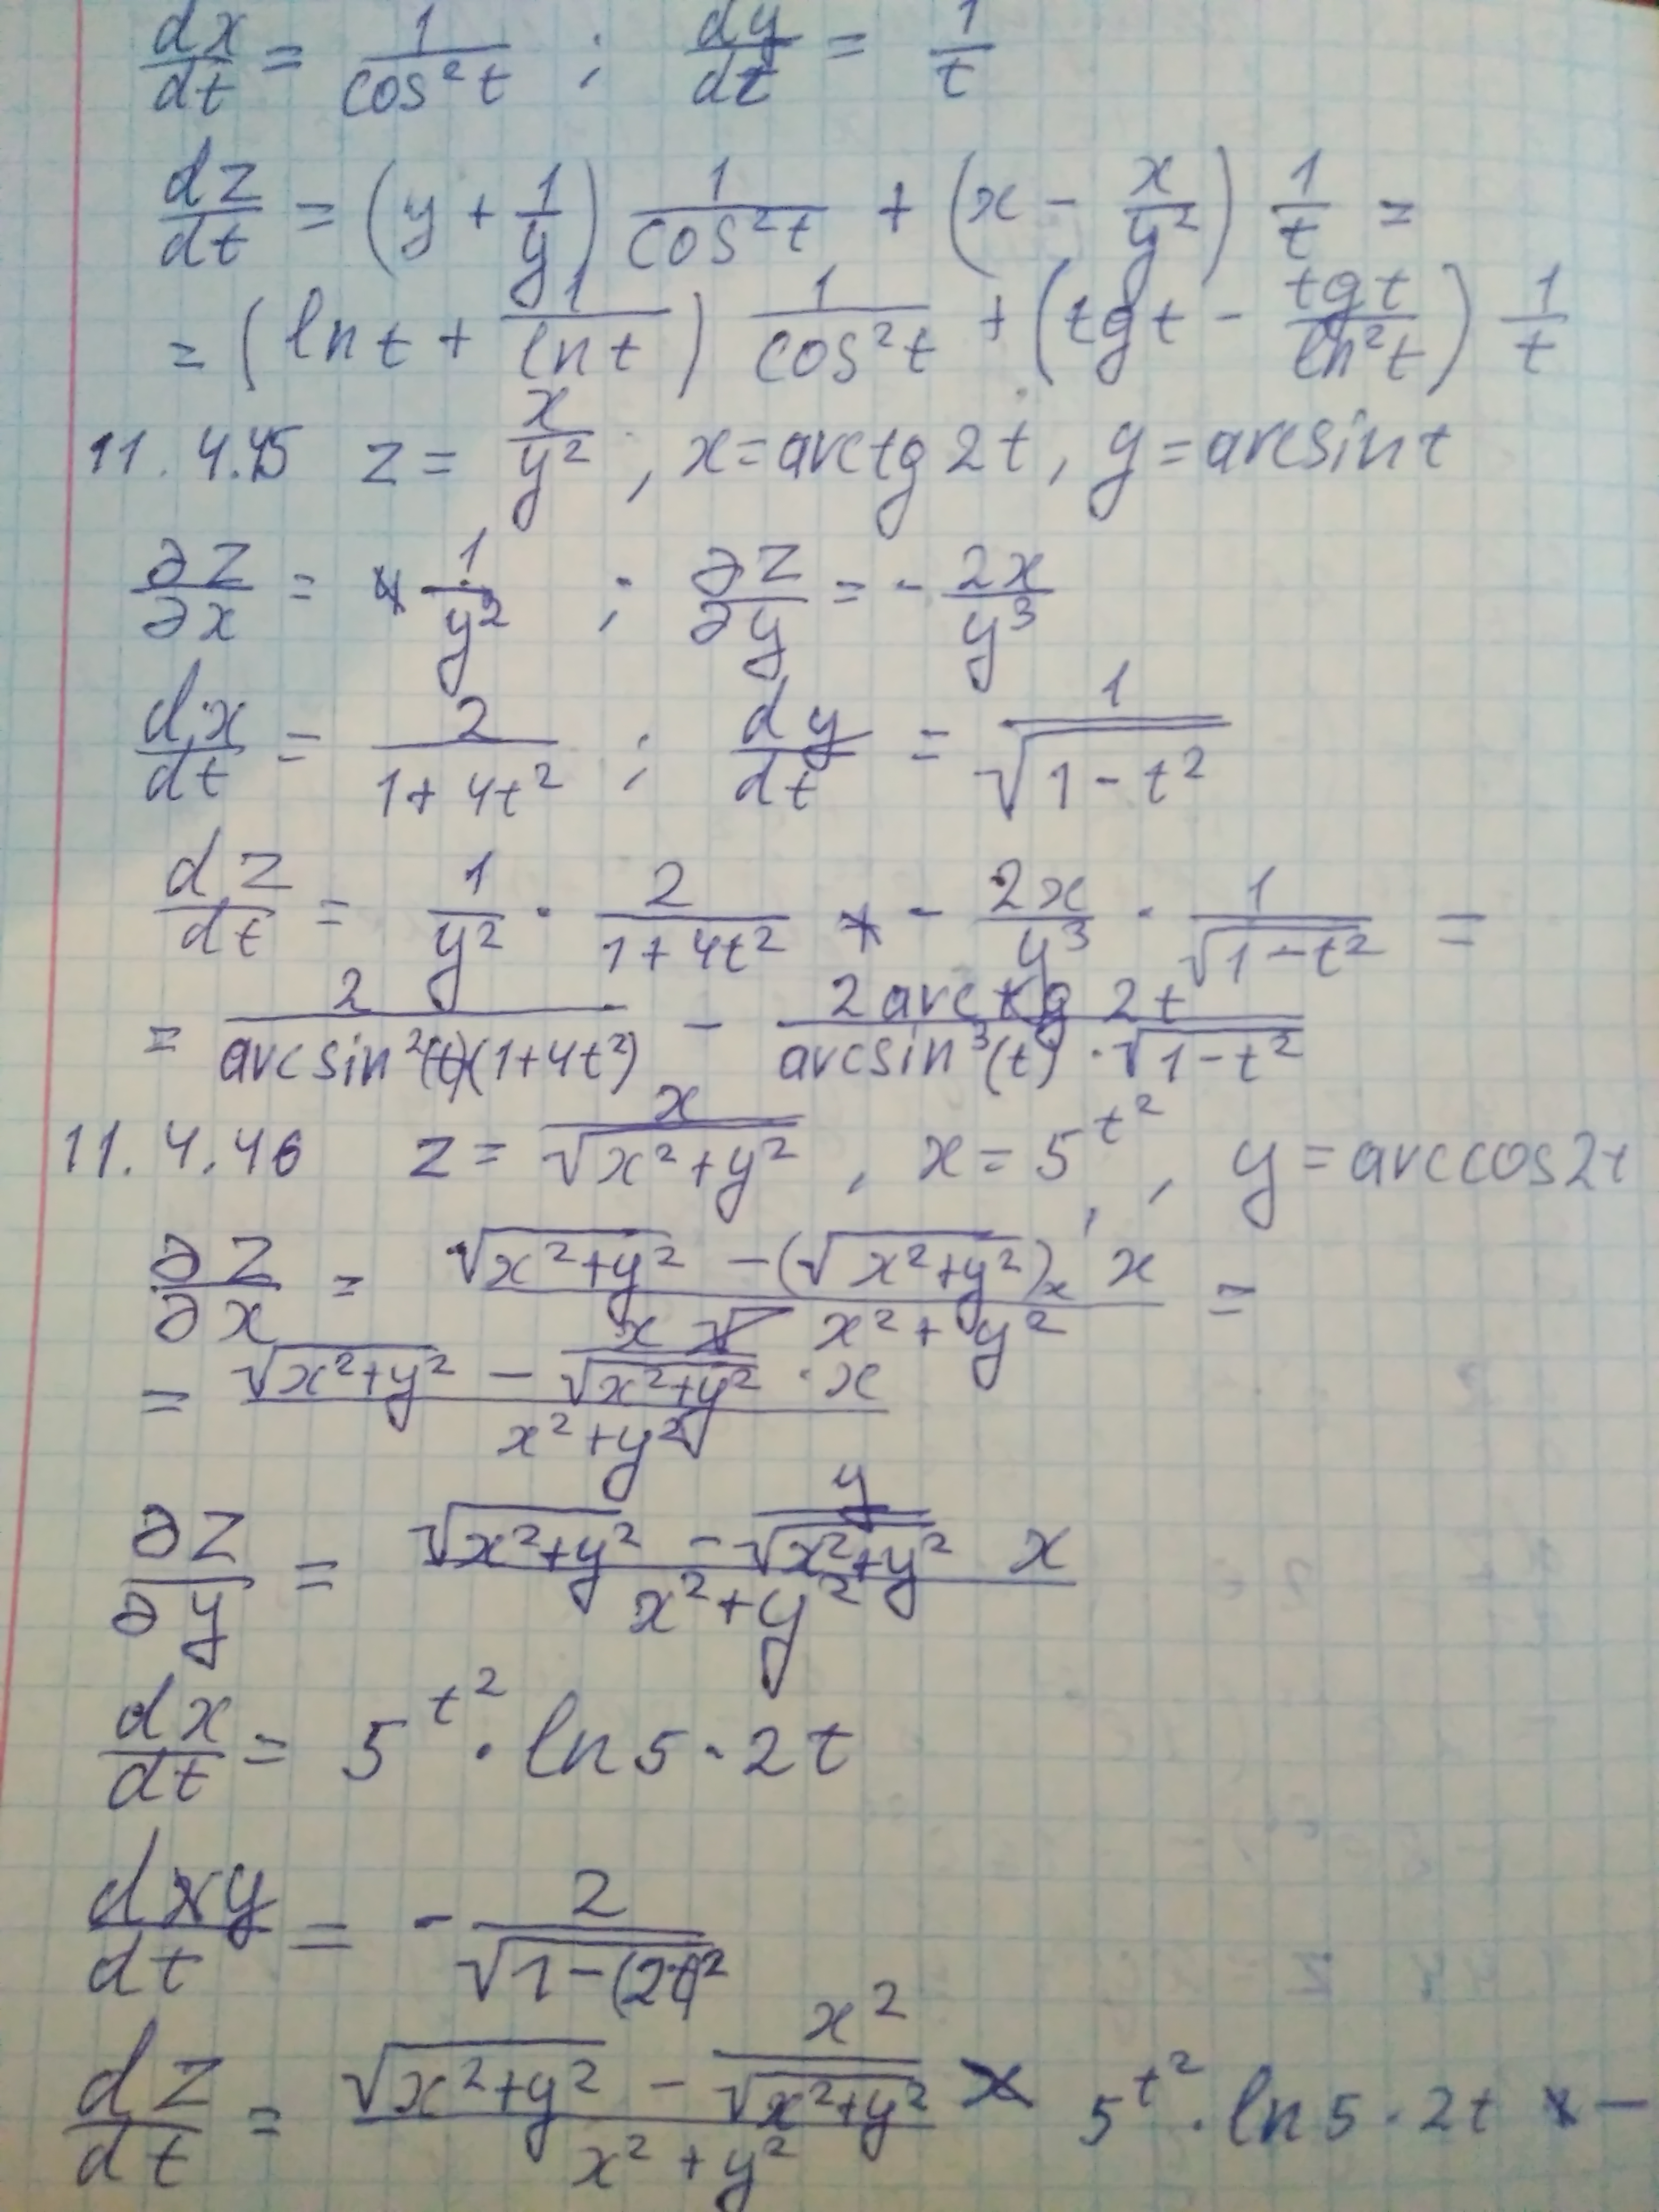 dx/dt = 1/cos²t ; dy/dt = 1/t
dz/dt = (y + 1/y) 1/cos²t + (x - x/y²) 1/t =
= (ln t + 1/ln t) 1/cos²t + (tg t - tg t/ln²t) 1/t
11.4.45 z = x/y², x = arctg 2t, y = arcsin t
∂z/∂x = 1/y² ; ∂z/∂y = - 2x/y³
dx/dt = 2/(1+4t²) ; dy/dt = 1/√(1-t²)
dz/dt = 1/y² · 2/(1+4t²) - 2x/y³ · 1/√(1-t²) =
= 2/(arcsin²(t)(1+4t²)) - 2 arctg 2t/(arcsin³(t) · √(1-t²))
11.4.46 z = x/√(x²+y²), x = 5^(t²), y = arccos 2t
∂z/∂x = (√(x²+y²) - (√(x²+y²))'ₓ x)/(x²+y²) =
= (√(x²+y²) - x/√(x²+y²) · x)/(x²+y²)
∂z/∂y = (√(x²+y²) - y/√(x²+y²) x)/(x²+y²)
dx/dt = 5^(t²) · ln 5 · 2t
dy/dt = - 2/√(1-(2t)²)
dz/dt = (√(x²+y²) - x²/√(x²+y²))/(x²+y²) 5^(t²) · ln 5 · 2t -